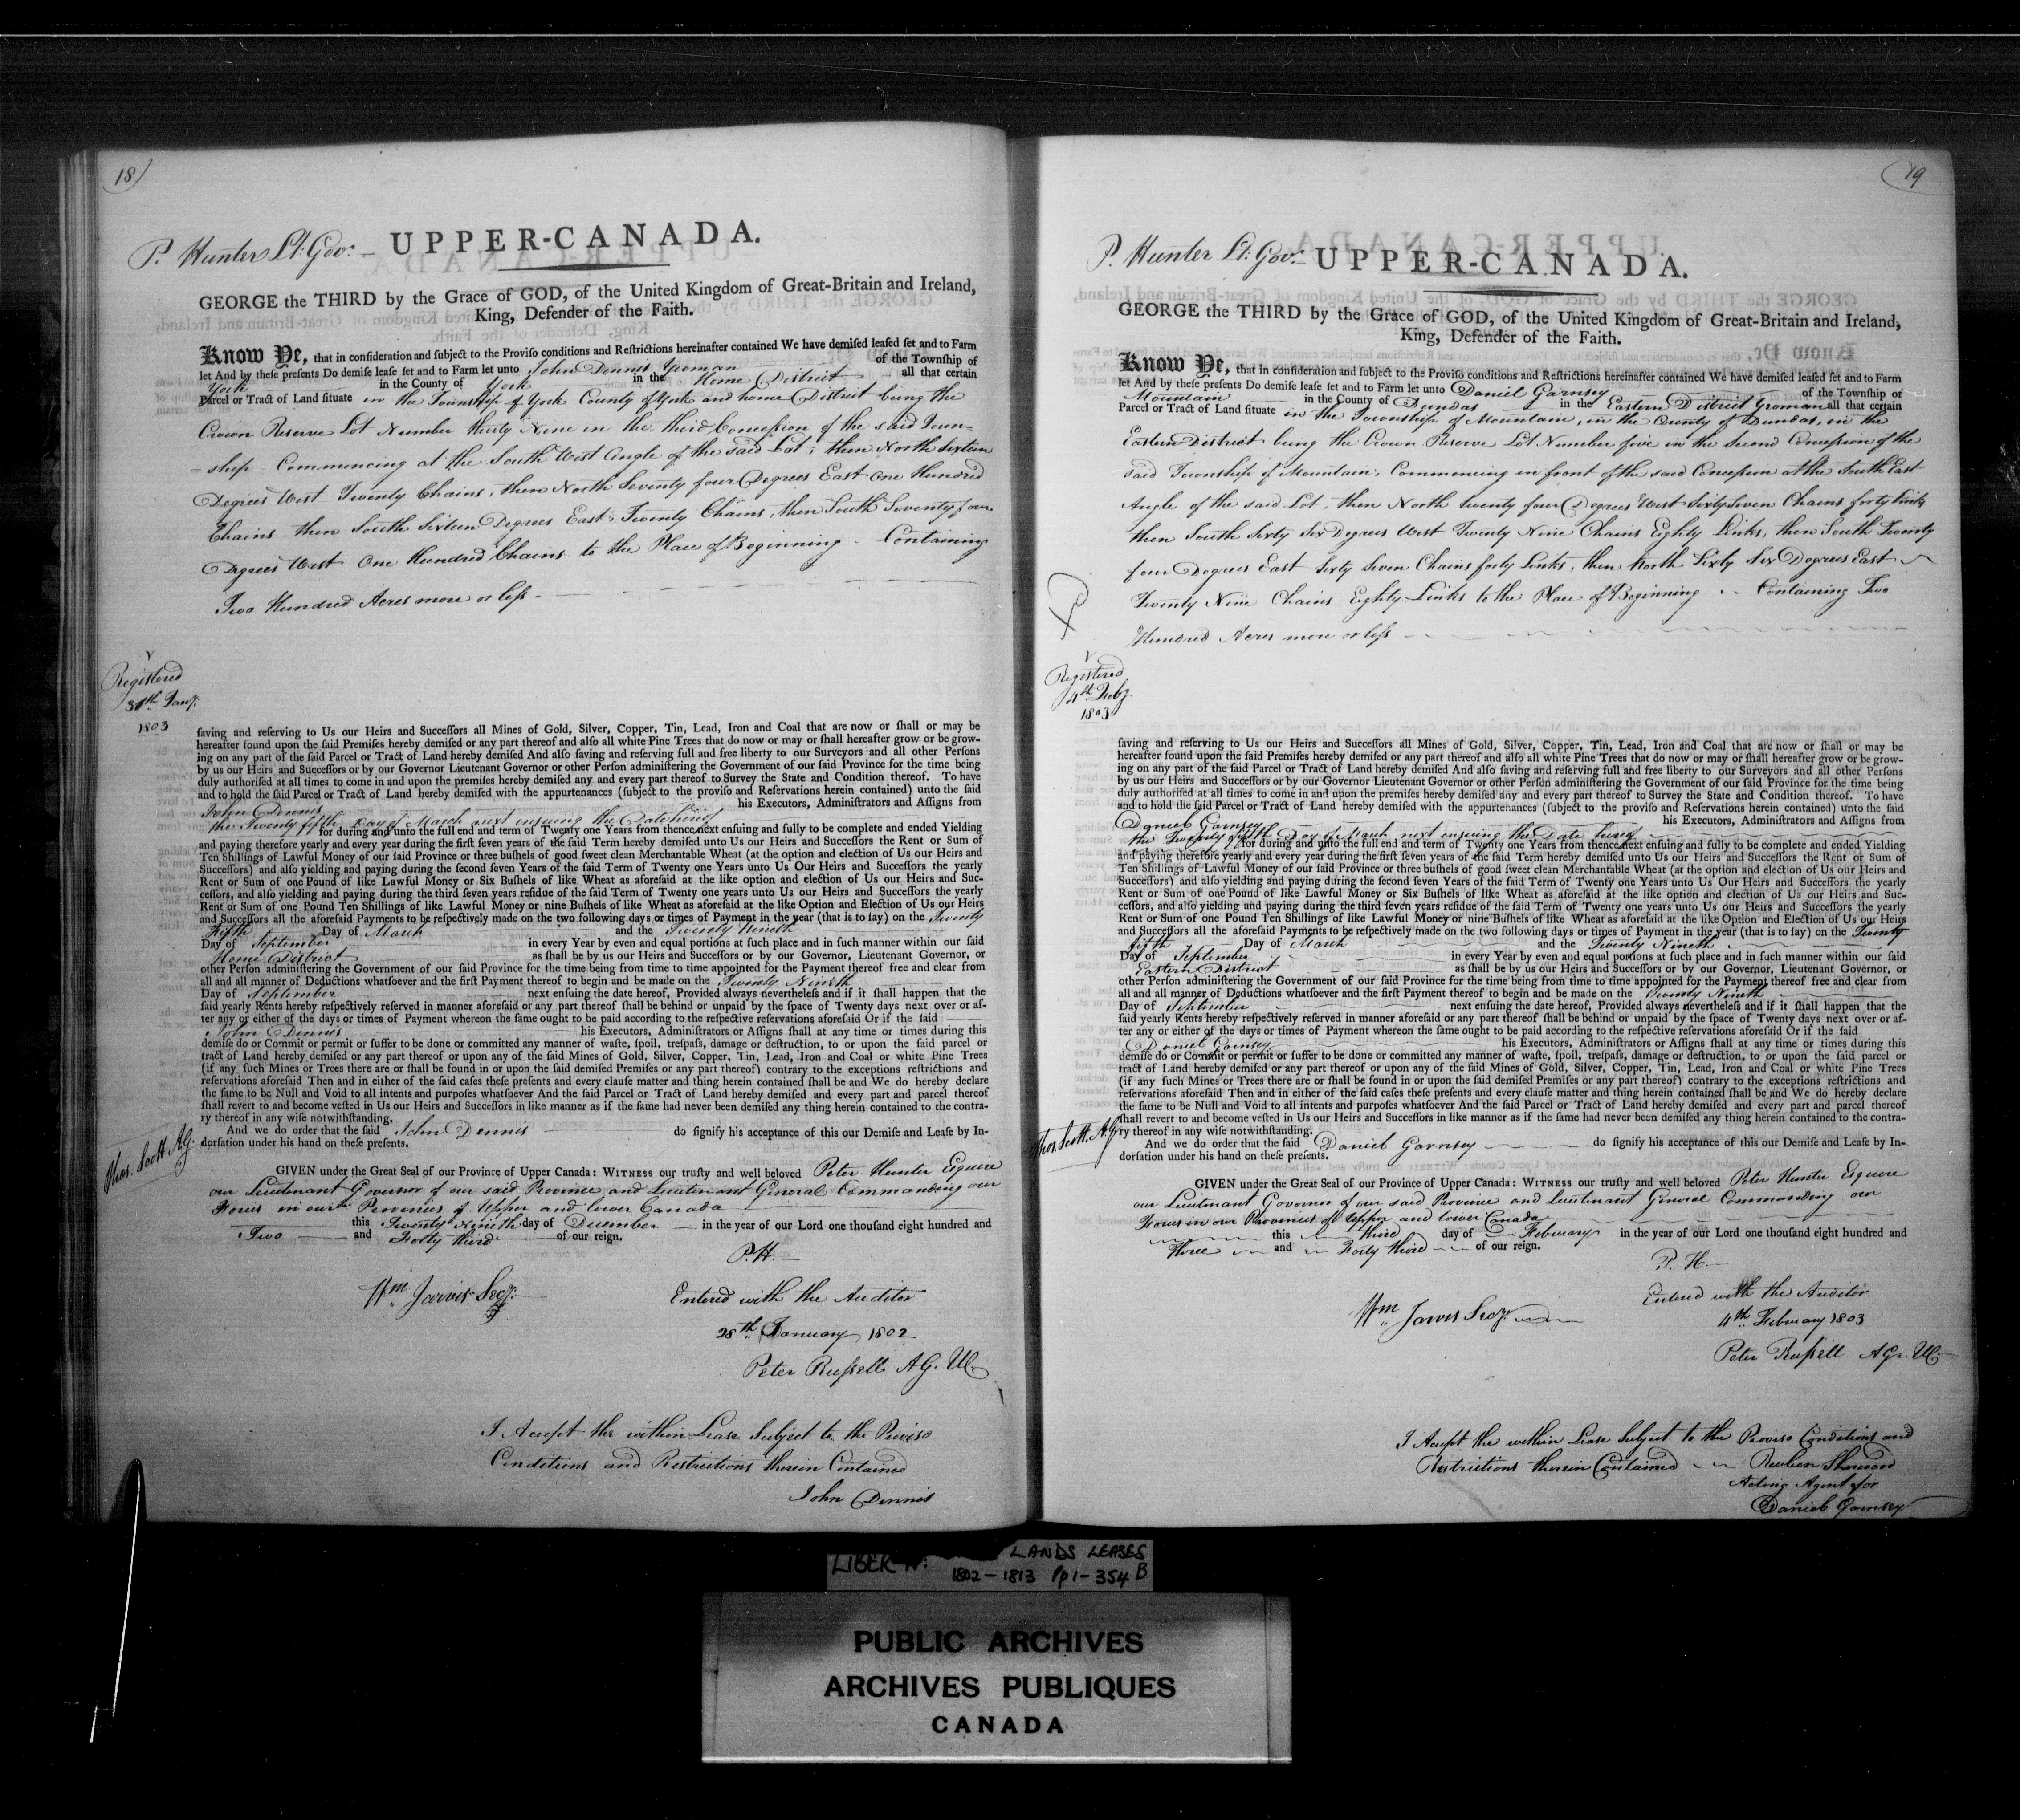 18
P. Hunter Lt: Gov:
UPPER-CANADA.
GEORGE the THIRD by the Grace of GOD, of the United Kingdom of Great-Britain and Ireland,
King, Defender of the Faith.
Know Ye, that in conſideration and ſubject to the Proviſo conditions and Reſtrictions hereinafter contained We have demiſed leaſed ſet and to Farm
let And by theſe preſents Do demiſe leaſe ſet and to Farm let unto John Dennis Yeoman of the Townſhip of
York in the County of York in the Home District all that certain
Parcel or Tract of Land ſituate in the Township of York County of York and home District being the
Crown Reserve Lot Number thirty Nine in the third Concession of the said Town-
-ship - Commencing at the South West Angle of the said Lot; then North Sixteen
Degrees West Twenty Chains, then North Seventy four Degrees East One Hundred
Chains then South Sixteen Degrees East Twenty Chains, then South Seventy four
Degrees West One Hundred Chains to the Place of Beginning - Containing
Two Hundred Acres more or less -
Registered
31th Jany:
1803
ſaving and reſerving to Us our Heirs and Succeſſors all Mines of Gold, Silver, Copper, Tin, Lead, Iron and Coal that are now or ſhall or may be
hereafter found upon the ſaid Premiſes hereby demiſed or any part thereof and alſo all white Pine Trees that do now or may or ſhall hereafter grow or be grow-
ing on any part of the ſaid Parcel or Tract of Land hereby demiſed And alſo ſaving and reſerving full and free liberty to our Surveyors and all other Perſons
by us our Heirs and Succeſſors or by our Governor Lieutenant Governor or other Perſon adminiſtering the Government of our ſaid Province for the time being
duly authoriſed at all times to come in and upon the premiſes hereby demiſed any and every part thereof to Survey the State and Condition thereof. To have
and to hold the ſaid Parcel or Tract of Land hereby demiſed with the appurtenances (ſubject to the proviſo and Reſervations herein contained) unto the ſaid
John Dennis his Executors, Adminiſtrators and Aſſigns from
the Twenty fifth Day of March next ensuing the Date hereof
for during and unto the full end and term of Twenty one Years from thence next enſuing and fully to be complete and ended Yielding
and paying therefore yearly and every year during the firſt ſeven years of the ſaid Term hereby demiſed unto Us our Heirs and Succeſſors the Rent or Sum of
Ten Shillings of Lawful Money of our ſaid Province or three buſhels of good ſweet clean Merchantable Wheat (at the option and election of Us our Heirs and
Succeſſors) and alſo yielding and paying during the ſecond ſeven Years of the ſaid Term of Twenty one Years unto Us Our Heirs and Succeſſors the yearly
Rent or Sum of one Pound of like Lawful Money or Six Buſhels of like Wheat as aforeſaid at the like option and election of Us our Heirs and Suc-
ceſſors, and alſo yielding and paying during the third ſeven years reſidue of the ſaid Term of Twenty one years unto Us our Heirs and Succeſſors the yearly
Rent or Sum of one Pound Ten Shillings of like Lawful Money or nine Buſhels of like Wheat as aforeſaid at the like Option and Election of Us our Heirs
and Succeſſors all the aforeſaid Payments to be reſpectively made on the two following days or times of Payment in the year (that is to ſay) on the Twenty
Fifth Day of March and the Twenty Nineth
Day of September in every Year by even and equal portions at ſuch place and in ſuch manner within our ſaid
Home District as ſhall be by us our Heirs and Succeſſors or by our Governor, Lieutenant Governor, or
other Perſon adminiſtering the Government of our ſaid Province for the time being from time to time appointed for the Payment thereof free and clear from
all and all manner of Deductions whatſoever and the firſt Payment thereof to begin and be made on the Twenty Nineth
Day of September next enſuing the date hereof, Provided always nevertheleſs and if it ſhall happen that the
ſaid yearly Rents hereby reſpectively reſerved in manner aforeſaid or any part thereof ſhall be behind or unpaid by the ſpace of Twenty days next over or af-
ter any or either of the days or times of Payment whereon the ſame ought to be paid according to the reſpective reſervations aforeſaid Or if the ſaid
John Dennis his Executors, Adminiſtrators or Aſſigns ſhall at any time or times during this
demiſe do or Commit or permit or ſuffer to be done or committed any manner of waſte, ſpoil, treſpaſs, damage or deſtruction, to or upon the ſaid parcel or
tract of Land hereby demiſed or any part thereof or upon any of the ſaid Mines of Gold, Silver, Copper, Tin, Lead, Iron and Coal or white Pine Trees
(if any ſuch Mines or Trees there are or ſhall be found in or upon the ſaid demiſed Premiſes or any part thereof) contrary to the exceptions reſtrictions and
reſervations aforeſaid Then and in either of the ſaid caſes theſe preſents and every clauſe matter and thing herein contained ſhall be and We do hereby declare
the ſame to be Null and Void to all intents and purpoſes whatſoever And the ſaid Parcel or Tract of Land hereby demiſed and every part and parcel thereof
ſhall revert to and become veſted in Us our Heirs and Succeſſors in like manner as if the ſame had never been demiſed any thing herein contained to the contra-
ry thereof in any wiſe notwithſtanding.
And we do order that the ſaid John Dennis do ſignify his acceptance of this our Demiſe and Leaſe by In-
dorſation under his hand on theſe preſents.
Thos. Scott A.G.
GIVEN under the Great Seal of our Province of Upper Canada: WITNESS our truſty and well beloved Peter Hunter Esquire
our Lieutenant Governor of our said Province and Lieutenant General Commanding our
Forces in our Provinces of Upper and lower Canada
this Twenty Nineth day of December in the year of our Lord one thouſand eight hundred and
Two and Forty third of our reign.
P.H.
Wm Jarvis Secy.
Entered with the Auditor
28th January 1802
Peter Russell A.G. Ul.
I Accept the within Lease Subject to the Proviso
Conditions and Restrictions therein Contained
John Dennis
19
P. Hunter Lt: Gov:
UPPER-CANADA.
GEORGE the THIRD by the Grace of GOD, of the United Kingdom of Great-Britain and Ireland,
King, Defender of the Faith.
Know Ye, that in conſideration and ſubject to the Proviſo conditions and Reſtrictions hereinafter contained We have demiſed leaſed ſet and to Farm
let And by theſe preſents Do demiſe leaſe ſet and to Farm let unto Daniel Garnsey of the Townſhip of
Mountain in the County of Dundas in the Eastern District Yeoman all that certain
Parcel or Tract of Land ſituate in the Township of Mountain, in the County of Dundas, in the
Eastern District being the Crown Reserve Lot Number five in the Second Concession of the
said Township of Mountain; Commencing in front of the said Concession at the South East
Angle of the said Lot, then North twenty four Degrees West Sixty Seven Chains forty links
then South Sixty Six Degrees West Twenty Nine Chains Eighty Links, then South Twenty
four Degrees East Sixty Seven Chains forty Links, then North Sixty Six Degrees East
Twenty Nine Chains Eighty Links to the Place of Beginning - Containing Two
Hundred Acres more or less
Registered
4th Feby
1803
ſaving and reſerving to Us our Heirs and Succeſſors all Mines of Gold, Silver, Copper, Tin, Lead, Iron and Coal that are now or ſhall or may be
hereafter found upon the ſaid Premiſes hereby demiſed or any part thereof and alſo all white Pine Trees that do now or may or ſhall hereafter grow or be grow-
ing on any part of the ſaid Parcel or Tract of Land hereby demiſed And alſo ſaving and reſerving full and free liberty to our Surveyors and all other Perſons
by us our Heirs and Succeſſors or by our Governor Lieutenant Governor or other Perſon adminiſtering the Government of our ſaid Province for the time being
duly authoriſed at all times to come in and upon the premiſes hereby demiſed any and every part thereof to Survey the State and Condition thereof. To have
and to hold the ſaid Parcel or Tract of Land hereby demiſed with the appurtenances (ſubject to the proviſo and Reſervations herein contained) unto the ſaid
Daniel Garnsey his Executors, Adminiſtrators and Aſſigns from
the Twenty fifth Day of March next ensuing the Date hereof
for during and unto the full end and term of Twenty one Years from thence next enſuing and fully to be complete and ended Yielding
and paying therefore yearly and every year during the firſt ſeven years of the ſaid Term hereby demiſed unto Us our Heirs and Succeſſors the Rent or Sum of
Ten Shillings of Lawful Money of our ſaid Province or three buſhels of good ſweet clean Merchantable Wheat (at the option and election of Us our Heirs and
Succeſſors) and alſo yielding and paying during the ſecond ſeven Years of the ſaid Term of Twenty one Years unto Us Our Heirs and Succeſſors the yearly
Rent or Sum of one Pound of like Lawful Money or Six Buſhels of like Wheat as aforeſaid at the like option and election of Us our Heirs and Suc-
ceſſors, and alſo yielding and paying during the third ſeven years reſidue of the ſaid Term of Twenty one years unto Us our Heirs and Succeſſors the yearly
Rent or Sum of one Pound Ten Shillings of like Lawful Money or nine Buſhels of like Wheat as aforeſaid at the like Option and Election of Us our Heirs
and Succeſſors all the aforeſaid Payments to be reſpectively made on the two following days or times of Payment in the year (that is to ſay) on the Twenty
fifth Day of March and the Twenty Nineth
Day of September in every Year by even and equal portions at ſuch place and in ſuch manner within our ſaid
Eastern District as ſhall be by us our Heirs and Succeſſors or by our Governor, Lieutenant Governor, or
other Perſon adminiſtering the Government of our ſaid Province for the time being from time to time appointed for the Payment thereof free and clear from
all and all manner of Deductions whatſoever and the firſt Payment thereof to begin and be made on the Twenty Nineth
Day of September next enſuing the date hereof, Provided always nevertheleſs and if it ſhall happen that the
ſaid yearly Rents hereby reſpectively reſerved in manner aforeſaid or any part thereof ſhall be behind or unpaid by the ſpace of Twenty days next over or af-
ter any or either of the days or times of Payment whereon the ſame ought to be paid according to the reſpective reſervations aforeſaid Or if the ſaid
Daniel Garnsey his Executors, Adminiſtrators or Aſſigns ſhall at any time or times during this
demiſe do or Commit or permit or ſuffer to be done or committed any manner of waſte, ſpoil, treſpaſs, damage or deſtruction, to or upon the ſaid parcel or
tract of Land hereby demiſed or any part thereof or upon any of the ſaid Mines of Gold, Silver, Copper, Tin, Lead, Iron and Coal or white Pine Trees
(if any ſuch Mines or Trees there are or ſhall be found in or upon the ſaid demiſed Premiſes or any part thereof) contrary to the exceptions reſtrictions and
reſervations aforeſaid Then and in either of the ſaid caſes theſe preſents and every clauſe matter and thing herein contained ſhall be and We do hereby declare
the ſame to be Null and Void to all intents and purpoſes whatſoever And the ſaid Parcel or Tract of Land hereby demiſed and every part and parcel thereof
ſhall revert to and become veſted in Us our Heirs and Succeſſors in like manner as if the ſame had never been demiſed any thing herein contained to the contra-
ry thereof in any wiſe notwithſtanding.
Thos. Scott. A.G.
And we do order that the ſaid Daniel Garnsey do ſignify his acceptance of this our Demiſe and Leaſe by In-
dorſation under his hand on theſe preſents.
GIVEN under the Great Seal of our Province of Upper Canada: WITNESS our truſty and well beloved Peter Hunter Esquire
our Lieutenant Governor of our said Province and Lieutenant General Commanding our
Forces in our Provinces of Upper and lower Canada
this third day of February in the year of our Lord one thouſand eight hundred and
Three and Forty third of our reign.
P. H.
Wm Jarvis Secy.
Entered with the Auditor
4th February 1803
Peter Russell A.G. Ul.
I Accept the within Lease Subject to the Proviso Conditions and
Restrictions therein Contained Reuben Sherwood
Acting Agent for
Daniel Garnsey
LIBER LANDS LEASES
1802-1813 Pp 1-354 B
PUBLIC ARCHIVES
ARCHIVES PUBLIQUES
CANADA